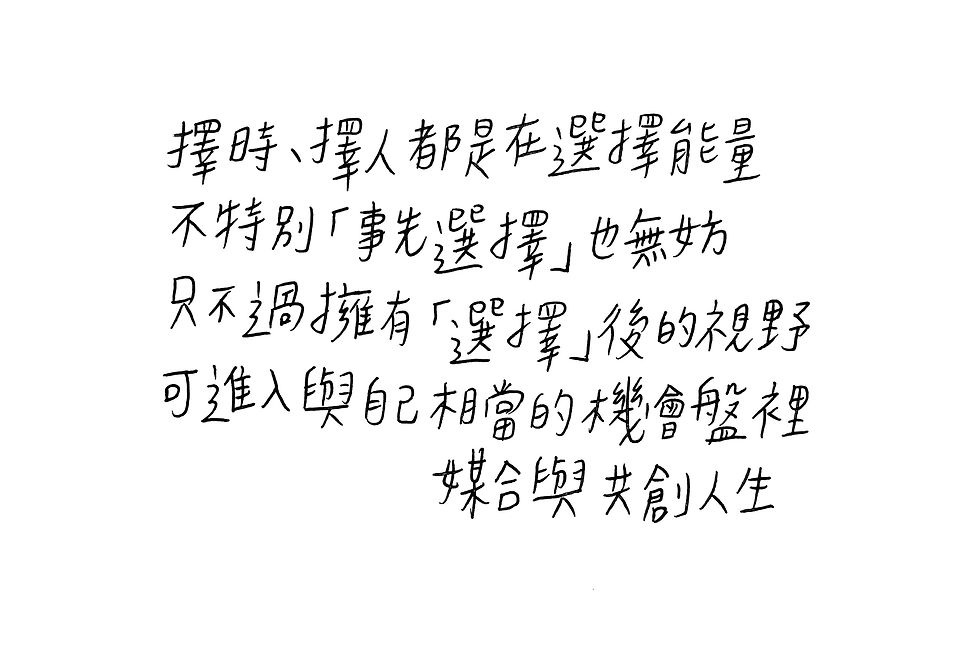 擇時、擇人都是在選擇能量
不特別「事先選擇」也無妨
只不過擁有「選擇」後的視野
可進入與自己相當的機會盤裡
媒合與共創人生